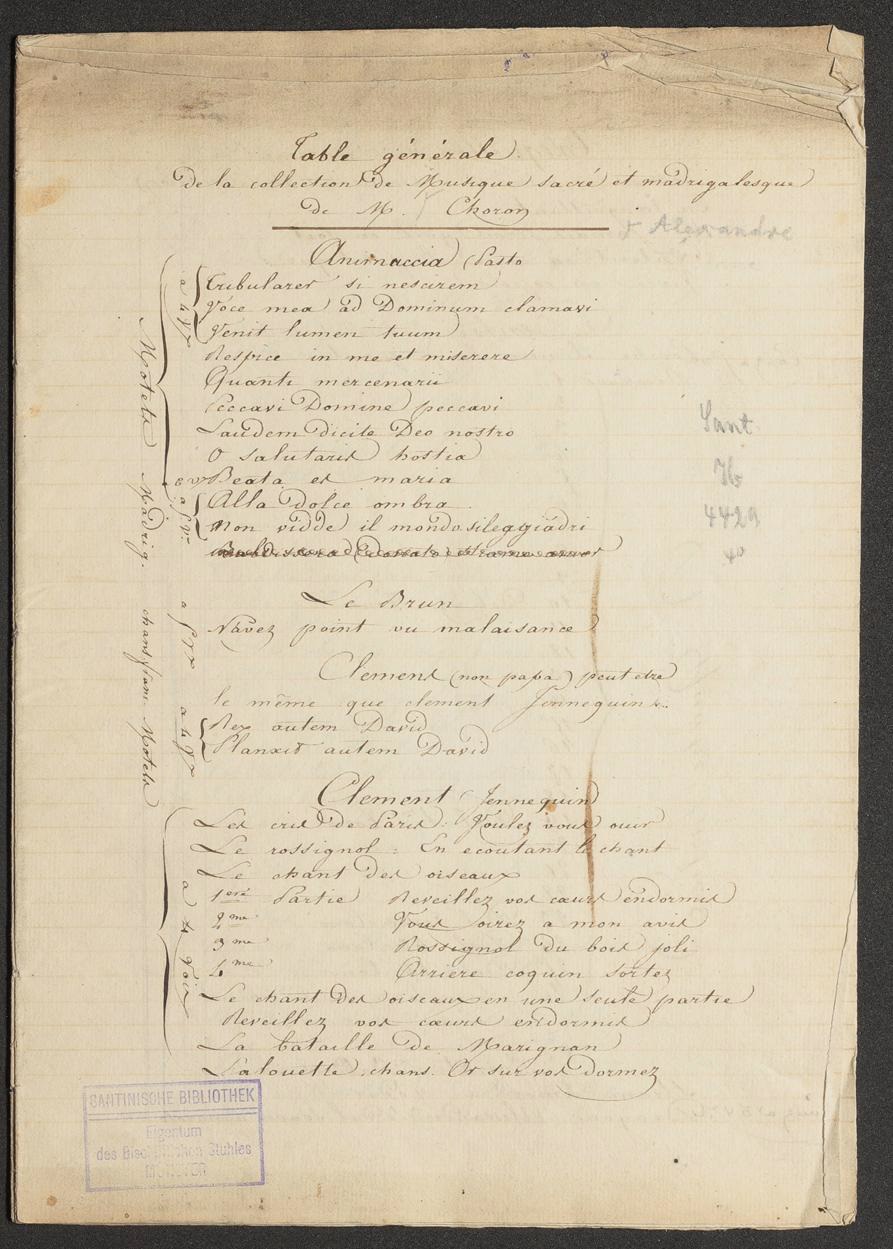 Table générale
De la collection de Musique sacré et madrigalesque
De M. Choron
+ Alexandre
Animuccia
a 4 Vx
Tribularer si nescirem
Voce mea ad Dominum clamavi
Venit lumen tuum
Respice in me et miserere
Quanti mercenarii
Peccavi Domine peccavi
Laudem dicite Deo nostro
O salutaris hostia
Beata es maria
Alla dolce ombra
Non vidde il mondo si leggiadri
Motets Madrig. chans. franc. Motets
Sant
Hs
4429
4º
Le Brun
N'avez point vu malaisance
Clemens (non papa) peut etre
le même que clement Jennequin
a 4 Vx
Rex autem David
Planxit autem David
Clement Jennequin
a 4 Voix
Les cris de Paris: Voulez vous ouir
Le rossignol: En ecoutant le chant
Le chant des oiseaux
1ere Partie Reveillez vos cœurs endormis
2me Vous oirez a mon avis
3me Rossignol du bois joli
4me Arriere coquin sortez
Le chant des oiseaux en une seule partie
Reveillez vos cœurs endormis
La bataille de Marignan
L'alouette, chans. Or sur vos dormez
SANTINISCHE BIBLIOTHEK
Eigentum
des Bischöflichen Stuhles
MÜNSTER